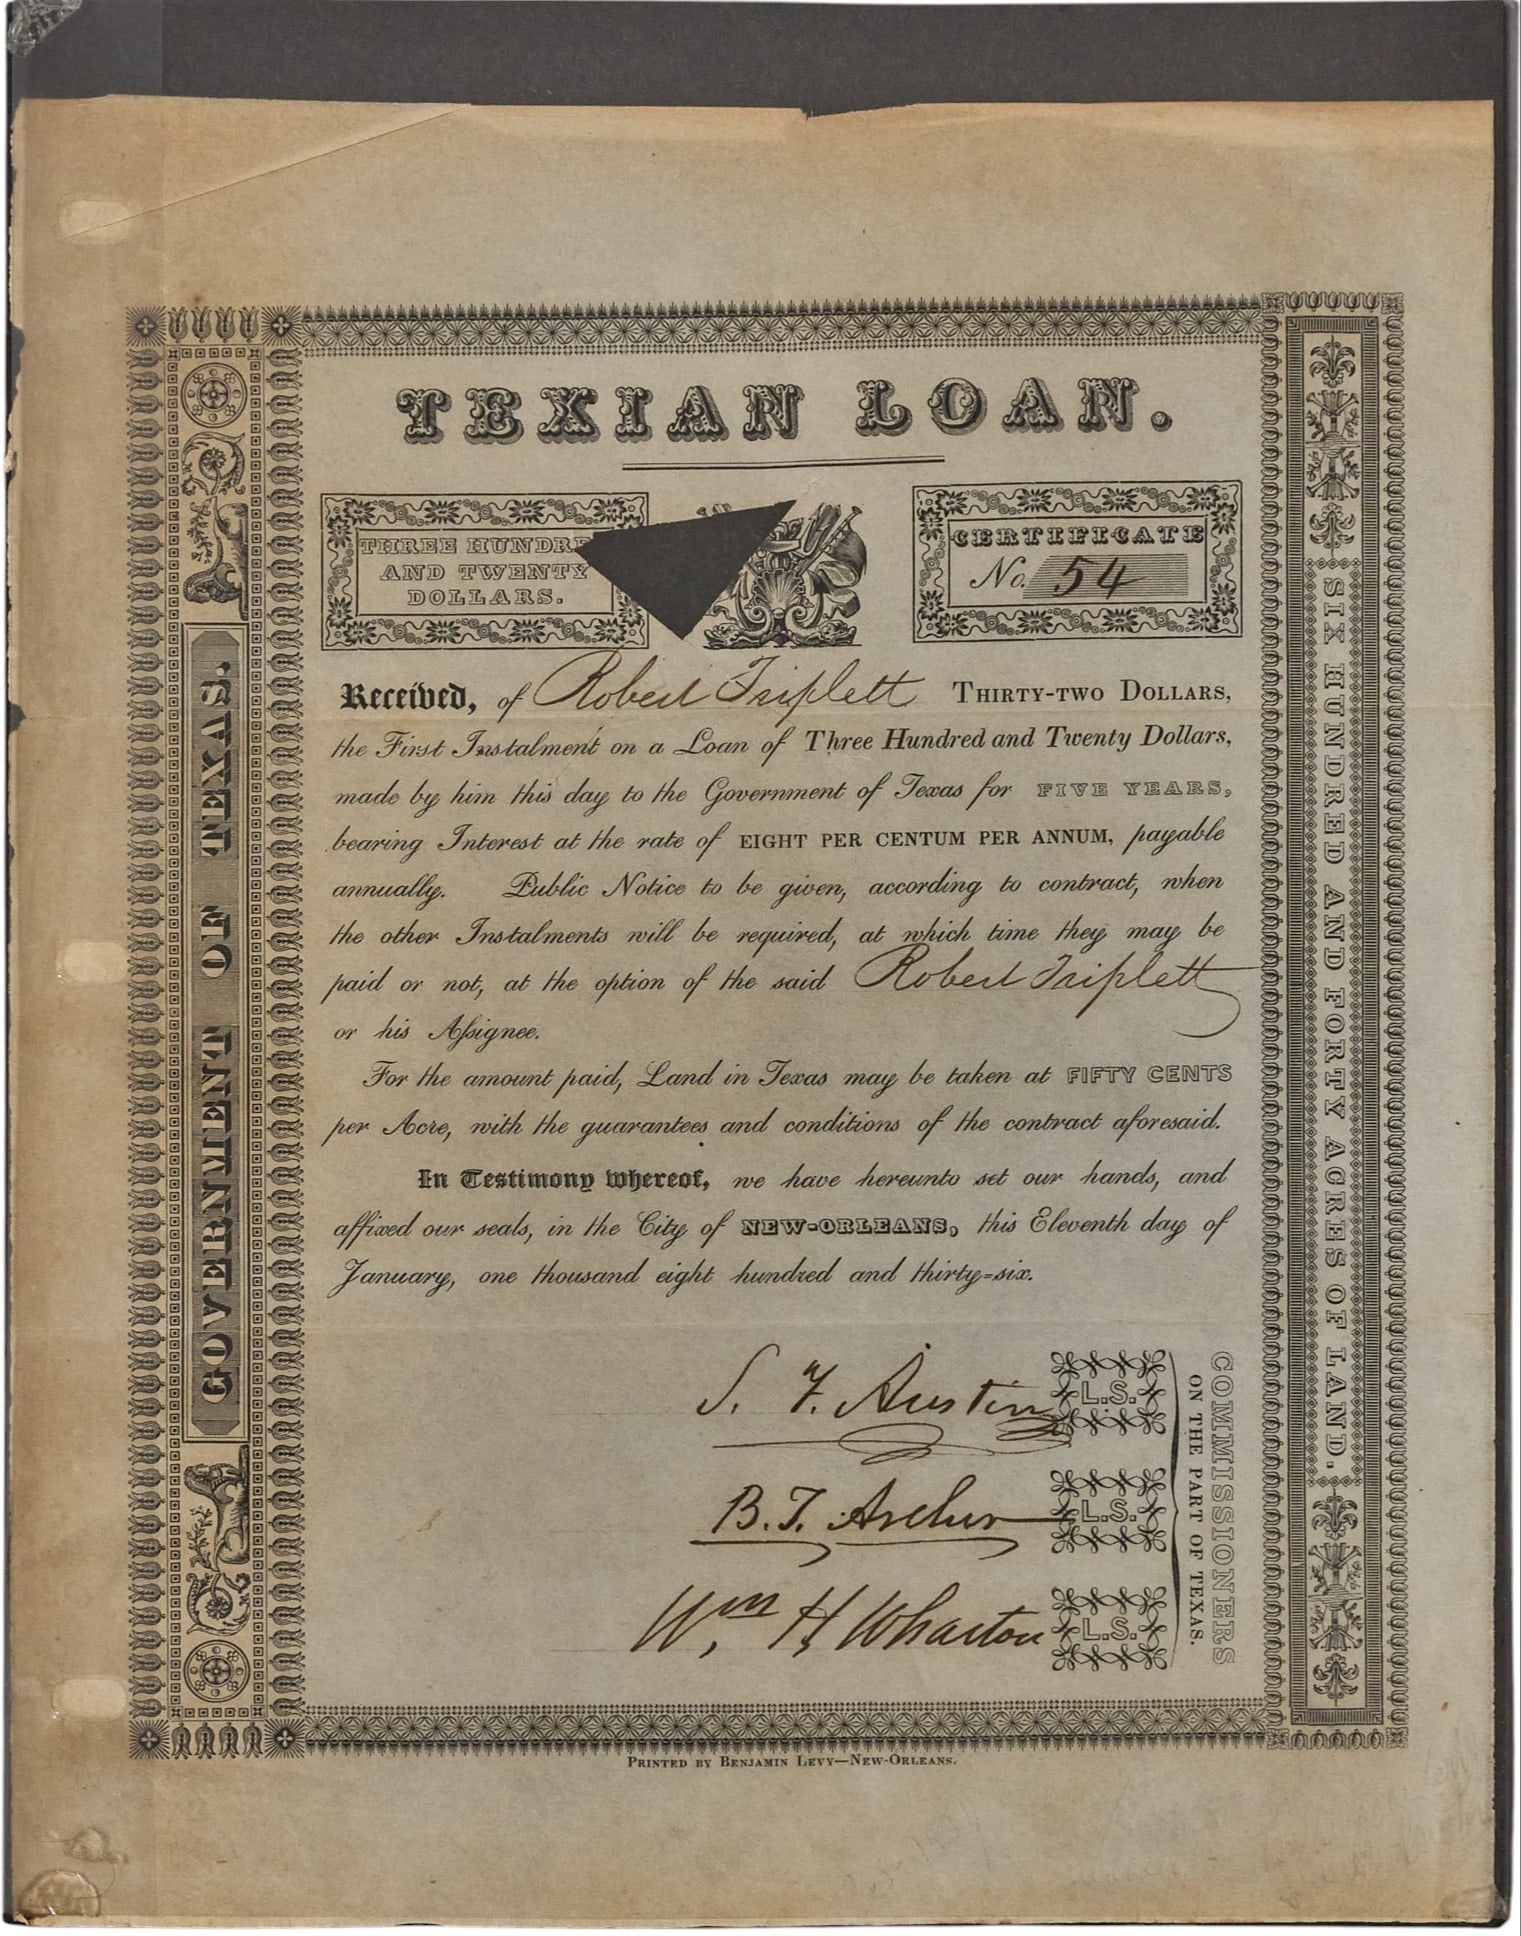 TEXIAN LOAN.
THREE HUNDRE
AND TWENTY
DOLLARS.
CERTIFICATE
No. 54
Received, of Robert Triplett THIRTY-TWO DOLLARS,
the First Instalment on a Loan of Three Hundred and Twenty Dollars,
made by him this day to the Government of Texas for FIVE YEARS,
bearing Interest at the rate of EIGHT PER CENTUM PER ANNUM, payable
annually. Public Notice to be given, according to contract, when
the other Instalments will be required, at which time they may be
paid or not, at the option of the said Robert Triplett
or his Assignee.
For the amount paid, Land in Texas may be taken at FIFTY CENTS
per Acre, with the guarantees and conditions of the contract aforesaid.
In Testimony whereof, we have hereunto set our hands, and
affixed our seals, in the City of NEW-ORLEANS, this Eleventh day of
January, one thousand eight hundred and thirty-six.
S. F. Austin L.S.
B. T. Archer L.S.
Wm H Wharton L.S.
COMMISSIONERS
ON THE PART OF TEXAS.
GOVERNMENT OF TEXAS.
SIX HUNDRED AND FORTY ACRES OF LAND.
PRINTED BY BENJAMIN LEVY—NEW-ORLEANS.